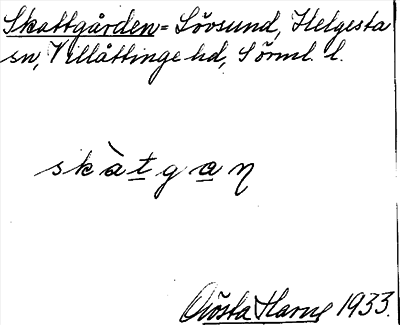 Skattgården = Sövsund, Helgesta
sn, Villåttinge hd, Sörml. l.
skàtgaŋ
Gösta Harne 1933.